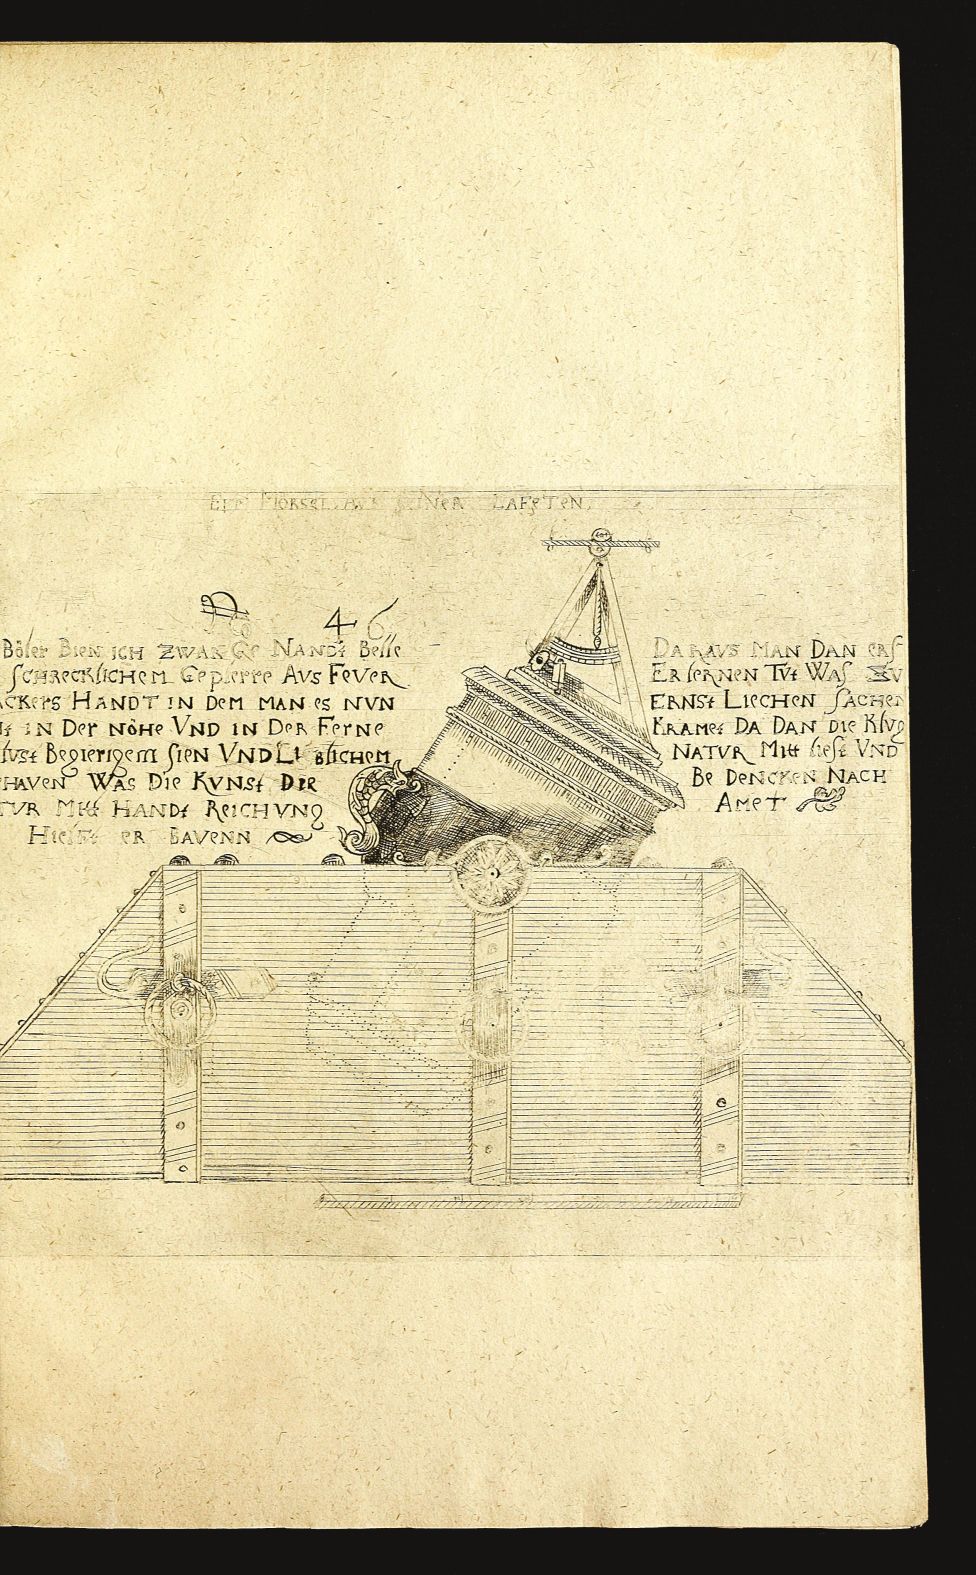 EIN MÖRSEL AUF SEINER LAFETEN
46
Böler BIEN ICH ZWAR GE NANDt Belle
SCHRECKLICHEM Gepierre AVS FEVER
HANDT IN DEM MAN es NVN
IN Der NÖHe VND IN DER FerNE
lust Begierigem SIEN VND LIeblICHEM
WAS Die KVNSt DER
MItt HANDt REICHVNg
er BAVENN
DARAVS MAN DAN erS
Er lerNEN TVt WAS ZV
ERNSt LIECHEN SACHEN
KRAMet DA DAN DIE KlVg
NATVR MItt lIeSt VND
BE DENCKEN NACH
AMET